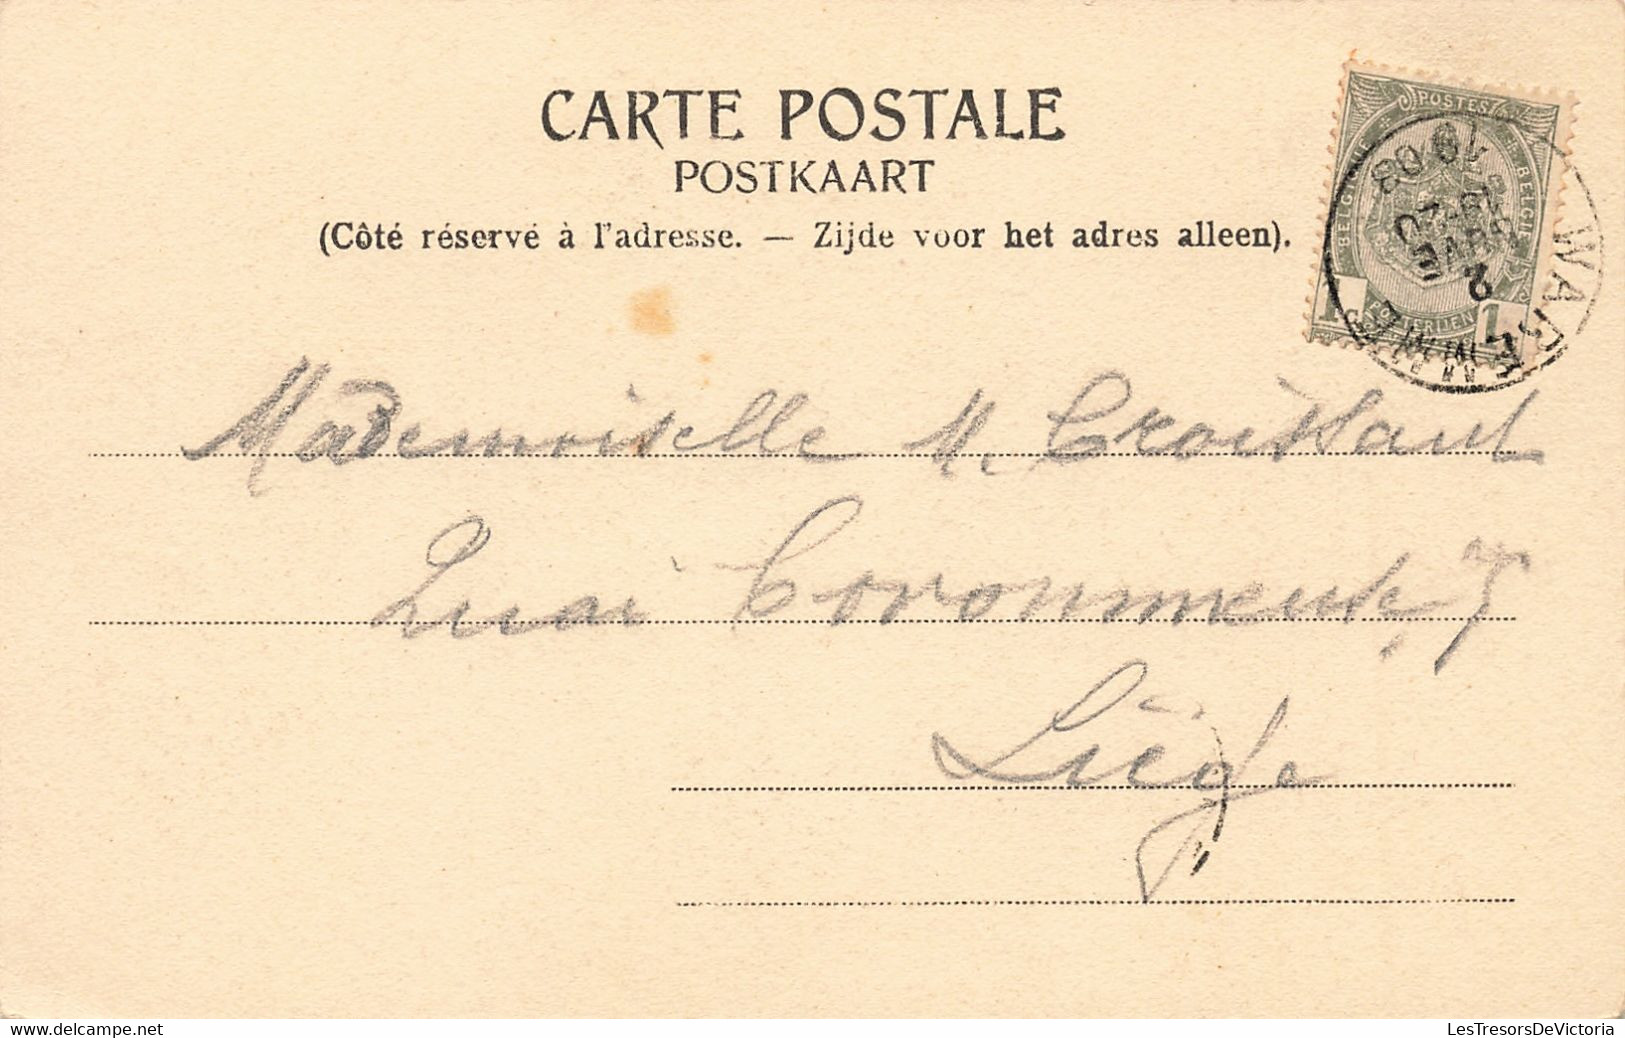 CARTE POSTALE
POSTKAART
(Côté réservé à l'adresse. — Zijde voor het adres alleen).
POSTES
BELGIQUE
BELGIE
POSTERIJEN
1 1
WAREMME
1903
2
Mademoiselle M. Croissant
Quai Coronmeuse, 7
Liège
www.delcampe.net
LesTresorsDeVictoria